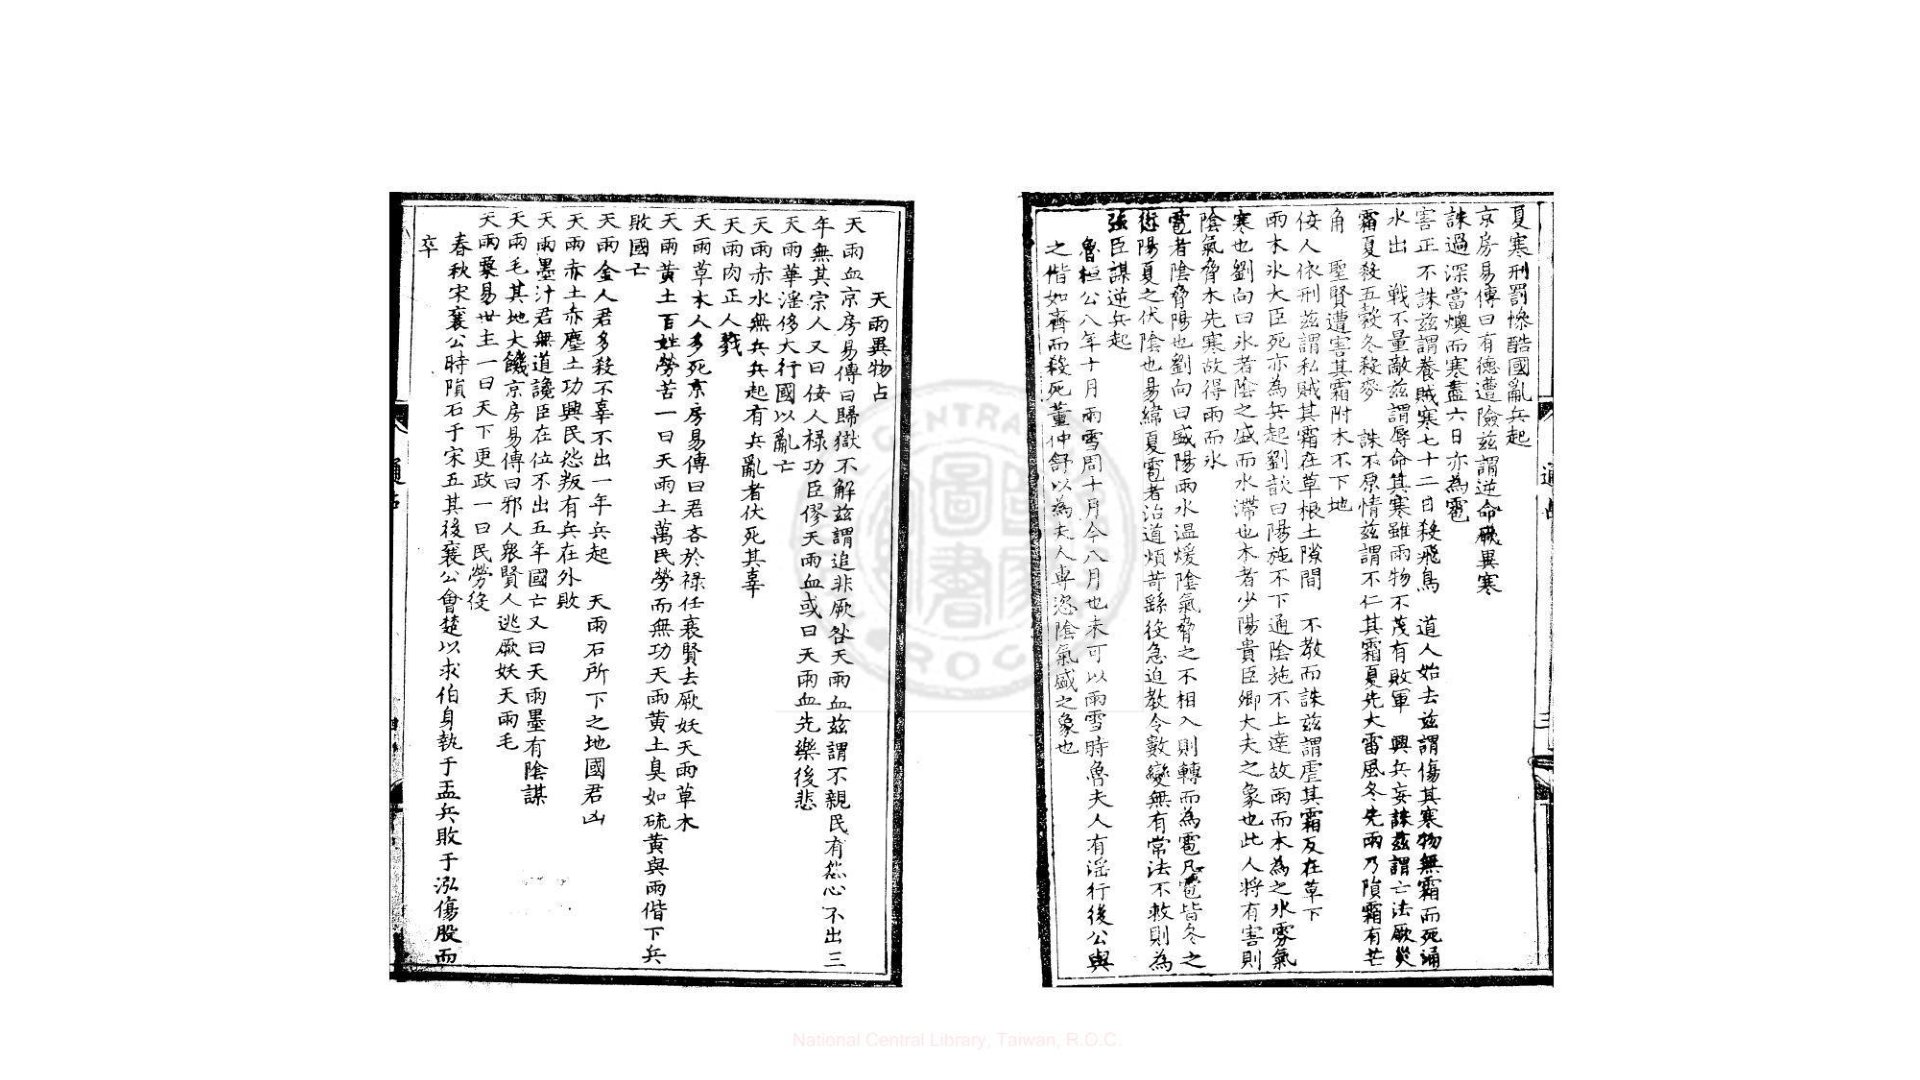 夏寒刑罰慘酷國亂兵起
京房易傳曰有德遭險茲謂逆命厥異寒
誅過深當燠而寒盡六日亦為雹
害正不誅茲謂養賊寒七十二日殺飛鳥　道人始去茲謂傷其寒物無霜而死涌
水出　戰不量敵茲謂辱命其寒雖雨物不茂有敗軍　興兵妄誅茲謂亡法厥災
霜夏殺五穀冬殺麥　誅不原情茲謂不仁其霜夏先大雷風冬先雨乃隕霜有芒
角　聖賢遭害其霜附木不下地
佞人依刑茲謂私賊其霜在草根土隙間　不教而誅茲謂虐其霜反在草下
雨木氷大臣死亦為兵起劉歆曰陽施不下通陰施不上達故雨而木為之氷雰氣
寒也劉向曰氷者陰之盛而水滯也木者少陽貴臣卿大夫之象也此人將有害則
陰氣脅木先寒故得雨而氷
雹者陰脅陽也劉向曰盛陽雨水溫煖陰氣脅之不相入則轉而為雹凡雹皆冬之
愆陽夏之伏陰也易緯夏雹者治道煩苛繇役急迫教令數變無有常法不救則為
張臣謀逆兵起
魯桓公八年十月雨雪周十月今八月也未可以雨雪時魯夫人有淫行後公與
之偕如齊而殺死董仲舒以為夫人專恣陰氣盛之象也
通占
三
天雨異物占
天雨血京房易傳曰歸獄不解茲謂追非厥咎天雨血茲謂不親民有怨心不出三
年無其宗人又曰佞人祿功臣僇天雨血或曰天雨血先樂後悲
天雨華淫侈大行國以亂亡
天雨赤水無兵兵起有兵亂者伏死其辜
天雨肉正人戮
天雨草木人多死京房易傳曰君吝於祿任衰賢去厥妖天雨草木
天雨黃土百姓勞苦一曰天雨土萬民勞而無功天雨黃土臭如硫黃與雨偕下兵
敗國亡
天雨金人君多殺不辜不出一年兵起　天雨石所下之地國君凶
天雨赤土赤塵土功興民怨叛有兵在外敗
天雨墨汁君無道讒臣在位不出五年國亡又曰天雨墨有陰謀
天雨毛其地大饑京房易傳曰邪人眾賢人逃厥妖天雨毛
天雨粟易世主一曰天下更政一曰民勞役
春秋宋襄公時隕石于宋五其後襄公會楚以求伯身執于盂兵敗于泓傷股而
卒
通占
National Central Library, Taiwan, R.O.C.